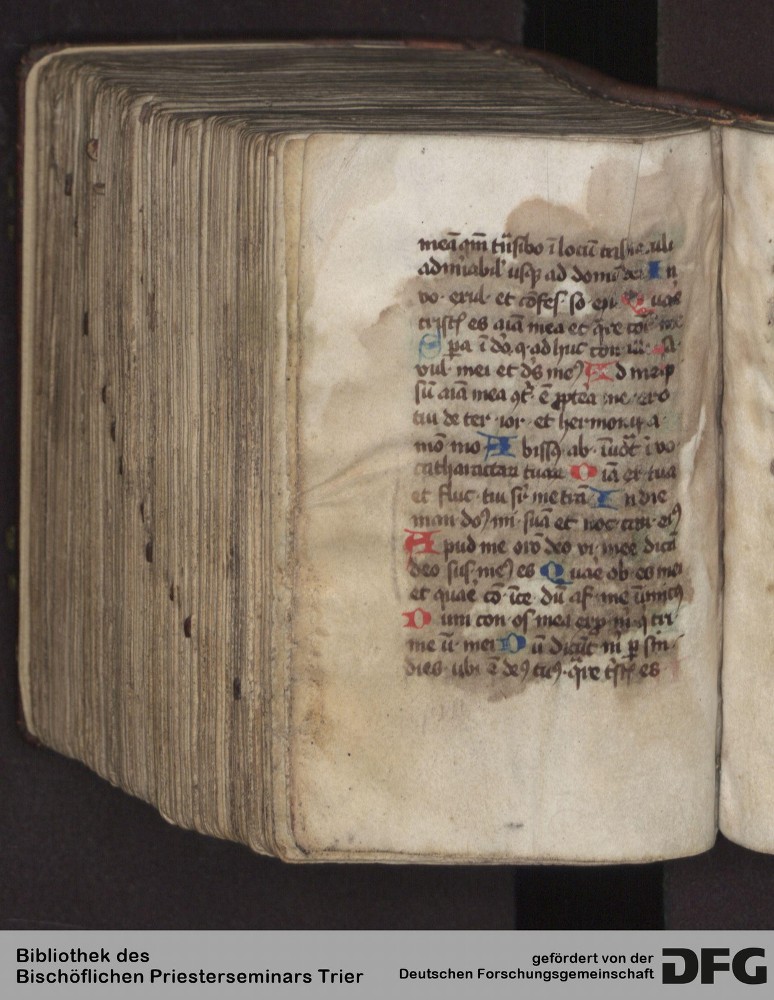 meā qm̄ trāsibo ī locū
admirabil' usq; ad domū dei In
vo· exul· et cōfes· so· ep Quas
tristꝭ es aīa mea et qre cō
Spa ī dō q· adhuc con
vul· mei et ds me9 Ad me ip
sū aīa mea 9t· ē ꝓptea me· ero
tui de ter· ior· et hermon
mō mo Abiss9 ab· īuōt ī vo
catharactar tuar Oīa et tua
et fluc· tui sr̄ me trā In die
man· do9 mi· suā et noc· can· ei9
Apud me orō deo vi· mee dicā
deo sus· me9 es Quae ob· es mei
et quae cō· īce· dū af· me inimic9
Dum con· os· mea exp· m· q tri·
me in· mei Dū dicūt m̄ p sin·
dies· ubi ē de9 tu9· qre tstꝭ es
Bibliothek des
Bischöflichen Priesterseminars Trier
gefördert von der
Deutschen Forschungsgemeinschaft
DFG